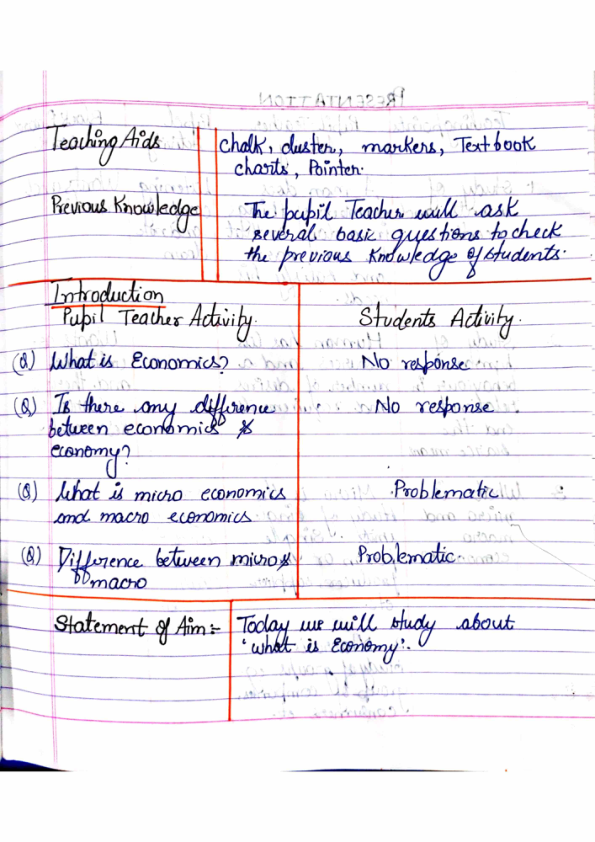 Teaching Aids chalk, duster, markers, Textbook
charts, Pointer.
Previous Knowledge The pupil Teacher will ask
several basic questions to check
the previous knowledge of students.
Introduction
Pupil Teacher Activity. Students Activity.
(Q) What is Economics? No response
(Q) Is there any difference No response
between economics &
economy?
(Q) What is micro economics Problematic
and macro economics
(Q) Difference between micro & Problematic.
macro
Statement of Aim:- Today we will study about
'what is Economy'.